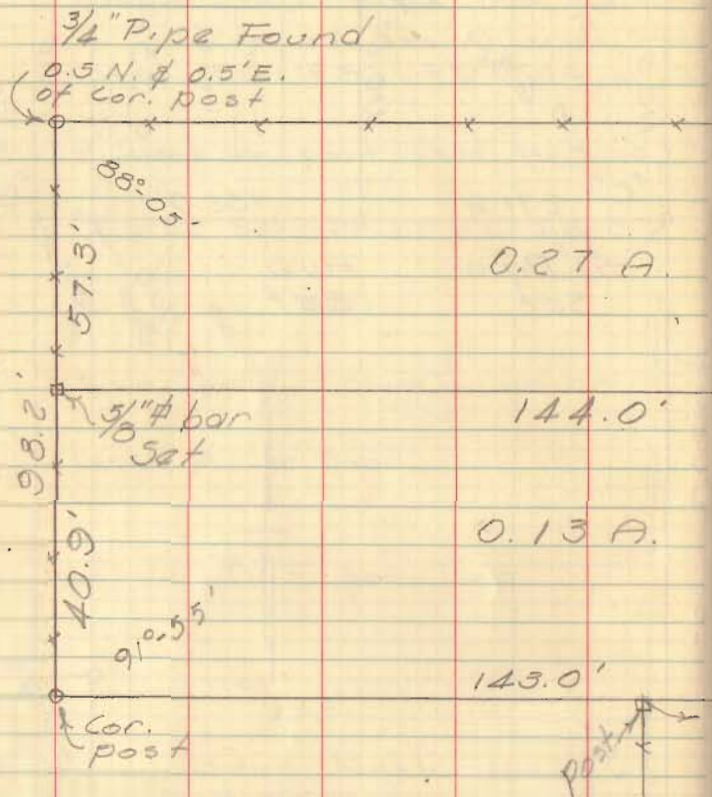 3/4" Pipe Found
0.5 N. & 0.5' E.
of cor. post
88°-05
57.3'
0.27 A.
98.2'
5/8" ϕ bar
Set
144.0'
40.9'
0.13 A.
91°-55'
143.0'
Cor.
post
post